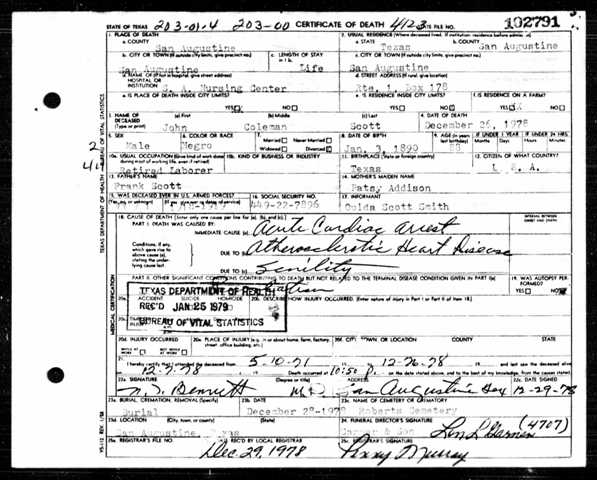 STATE OF TEXAS 203-01-4 203-00 CERTIFICATE OF DEATH 4123 STATE FILE NO. 102791
1. PLACE OF DEATH
a. COUNTY San Augustine
2. USUAL RESIDENCE (Where deceased lived. If institution: residence before admission)
a. STATE Texas b. COUNTY San Augustine
b. CITY OR TOWN (If outside city limits, give precinct no.) San Augustine
c. LENGTH OF STAY in 1 b. Life
c. CITY OR TOWN (If outside city limits, give precinct no.) San Augustine
d. NAME OF (If not in hospital, give street address) HOSPITAL OR INSTITUTION S. A. Nursing Center
d. STREET ADDRESS (If rural, give location) Rte. 1, Box 178
e. IS PLACE OF DEATH INSIDE CITY LIMITS? YES NO
e. IS RESIDENCE INSIDE CITY LIMITS? YES NO
f. IS RESIDENCE ON A FARM? YES NO
3. NAME OF DECEASED (Type or print) (a) First John (b) Middle Coleman (c) Last Scott
4. DATE OF DEATH December 26, 1978
5. SEX Male
6. COLOR OR RACE Negro
7. Married Never Married Widowed Divorced
8. DATE OF BIRTH Jan. 3, 1890
9. AGE (In years last birthday) 88
IF UNDER 1 YEAR Months Days
IF UNDER 24 HRS. Hours Min.
10a. USUAL OCCUPATION (Give kind of work done during most of working life, even if retired) Retired Laborer
10b. KIND OF BUSINESS OR INDUSTRY
11. BIRTHPLACE (State or foreign country) Texas
12. CITIZEN OF WHAT COUNTRY? U. S. A.
13. FATHER'S NAME Frank Scott
14. MOTHER'S MAIDEN NAME Patsy Addison
15. WAS DECEASED EVER IN U.S. ARMED FORCES?
16. SOCIAL SECURITY NO. 449-22-7896
17. INFORMANT Scott Smith
18. CAUSE OF DEATH [Enter only one cause per line for (a), (b), and (c).]
PART I. DEATH WAS CAUSED BY:
IMMEDIATE CAUSE (a) Acute Cardiac arrest
INTERVAL BETWEEN ONSET AND DEATH
Conditions, if any, which gave rise to above cause (a), stating the underlying cause last.
DUE TO (b) Atherosclerotic Heart Disease
DUE TO (c) Senility
PART II. OTHER SIGNIFICANT CONDITIONS CONTRIBUTING TO DEATH BUT NOT RELATED TO THE TERMINAL DISEASE CONDITION GIVEN IN PART I(a)
19. WAS AUTOPSY PERFORMED? YES NO
TEXAS DEPARTMENT OF HEALTH
REC'D JAN 25 1979
BUREAU OF VITAL STATISTICS
20a. ACCIDENT SUICIDE HOMICIDE
20b. DESCRIBE HOW INJURY OCCURRED. (Enter nature of injury in Part I or Part II of item 18.)
20d. INJURY OCCURRED
20e. PLACE OF INJURY (e.g. in or about home, farm, factory, street, office building, etc.)
20f. CITY OR TOWN OR LOCATION COUNTY STATE
21. I hereby certify that I attended the deceased from 5-10-71 12-26-78 and last saw the deceased alive
Death occurred at 10:50 p. m. on the date stated above, and to the best of my knowledge, from the causes stated.
22a. SIGNATURE Bennett (Degree or title) M.D.
22b. ADDRESS San Augustine
22c. DATE SIGNED 12-29-78
23a. BURIAL, CREMATION, REMOVAL (Specify) Burial
23b. DATE December 28-1978
23c. NAME OF CEMETERY OR CREMATORY Roberts Cemetery
23d. LOCATION (City, town, or county) (State) San Augustine,
24. FUNERAL DIRECTOR'S SIGNATURE & Son (4707)
25a. REGISTRAR'S FILE NO.
25b. REC'D BY LOCAL REGISTRAR Dec 29, 1978
25c. REGISTRAR'S SIGNATURE Murray
TEXAS DEPARTMENT OF HEALTH BUREAU OF VITAL STATISTICS
MEDICAL CERTIFICATION